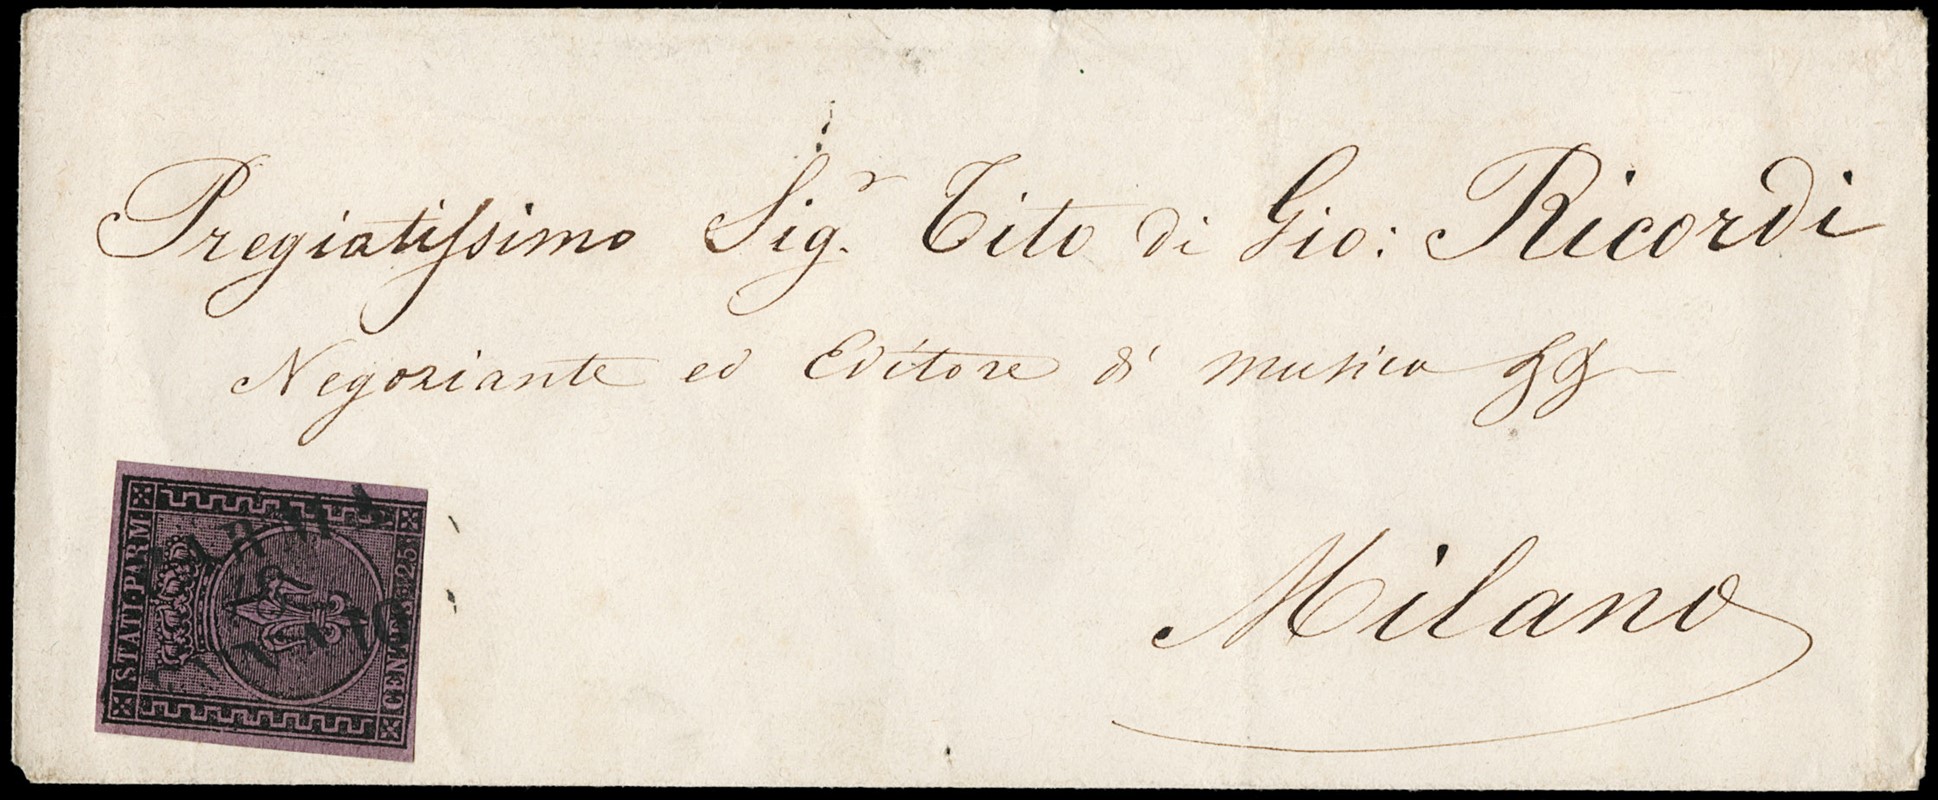 Pregiatissimo Sig.r Tito di Gio: Ricordi
Negoziante ed Editore di musica
Milano
STATI PARM.
CENT. 25
PARMA